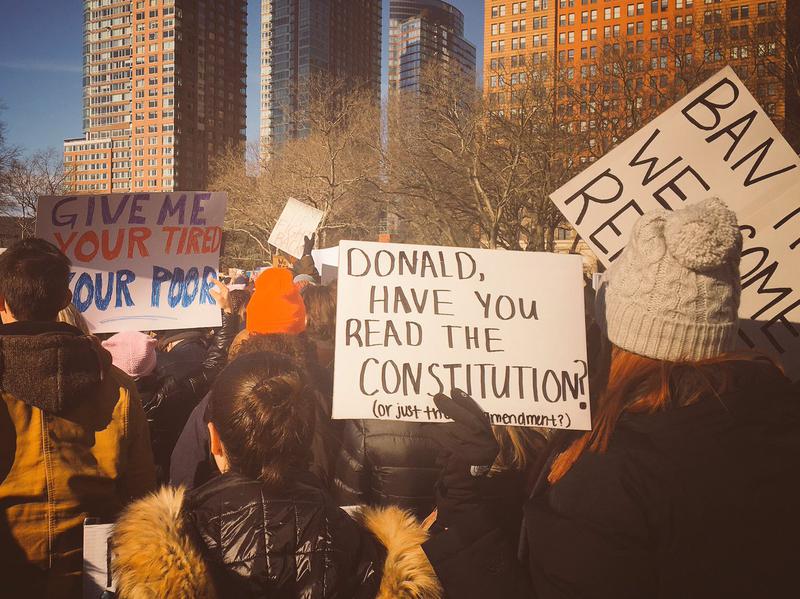 GIVE ME
YOUR TIRED
YOUR POOR
DONALD,
HAVE YOU
READ THE
CONSTITUTION?
(or just the amendment?)
BAN
WE